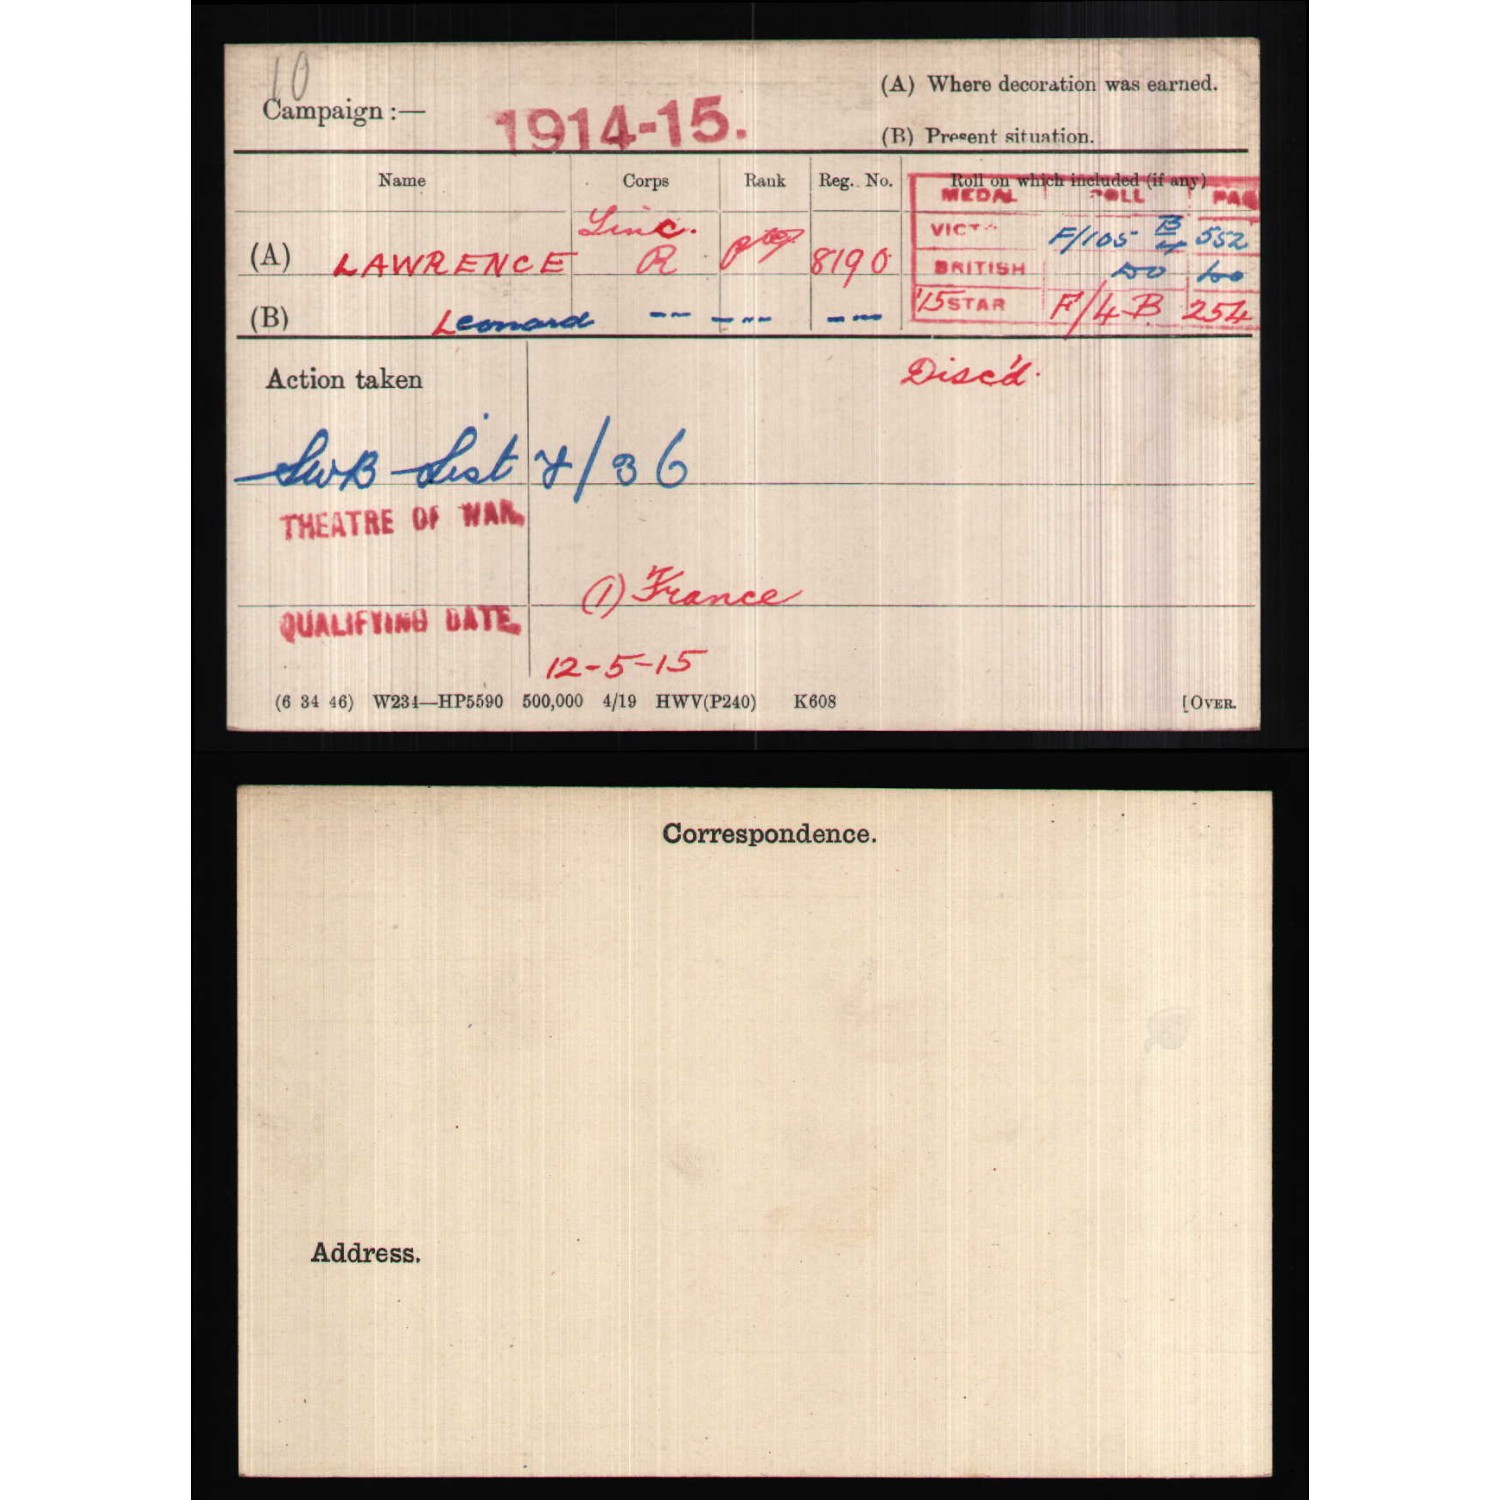 10
Campaign :— 1914-15.
(A) Where decoration was earned.
(B) Present situation.
Name Corps Rank Reg. No. Roll on which included (if any)
MEDAL ROLL PAG
(A) LAWRENCE Linc. R Pte 8190 VICT F/105 B 552
BRITISH do do
(B) Leonard -- --- --- '15 STAR F/4 B 254
Action taken Disc'd.
SWB List Y/36
THEATRE OF WAR. (1) France
QUALIFYING DATE. 12-5-15
(6 34 46) W234—HP5590 500,000 4/19 HWV(P240) K608 [OVER.
Correspondence.
Address.